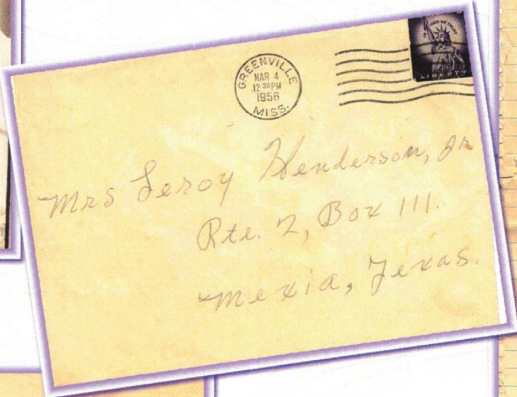 GREENVILLE
MAR 4
12 30 PM
1956
MISS.
IN GOD WE TRUST
LIBERTY
Mrs Leroy Henderson, Jr
Rte. 2, Box 111.
Mexia, Texas.